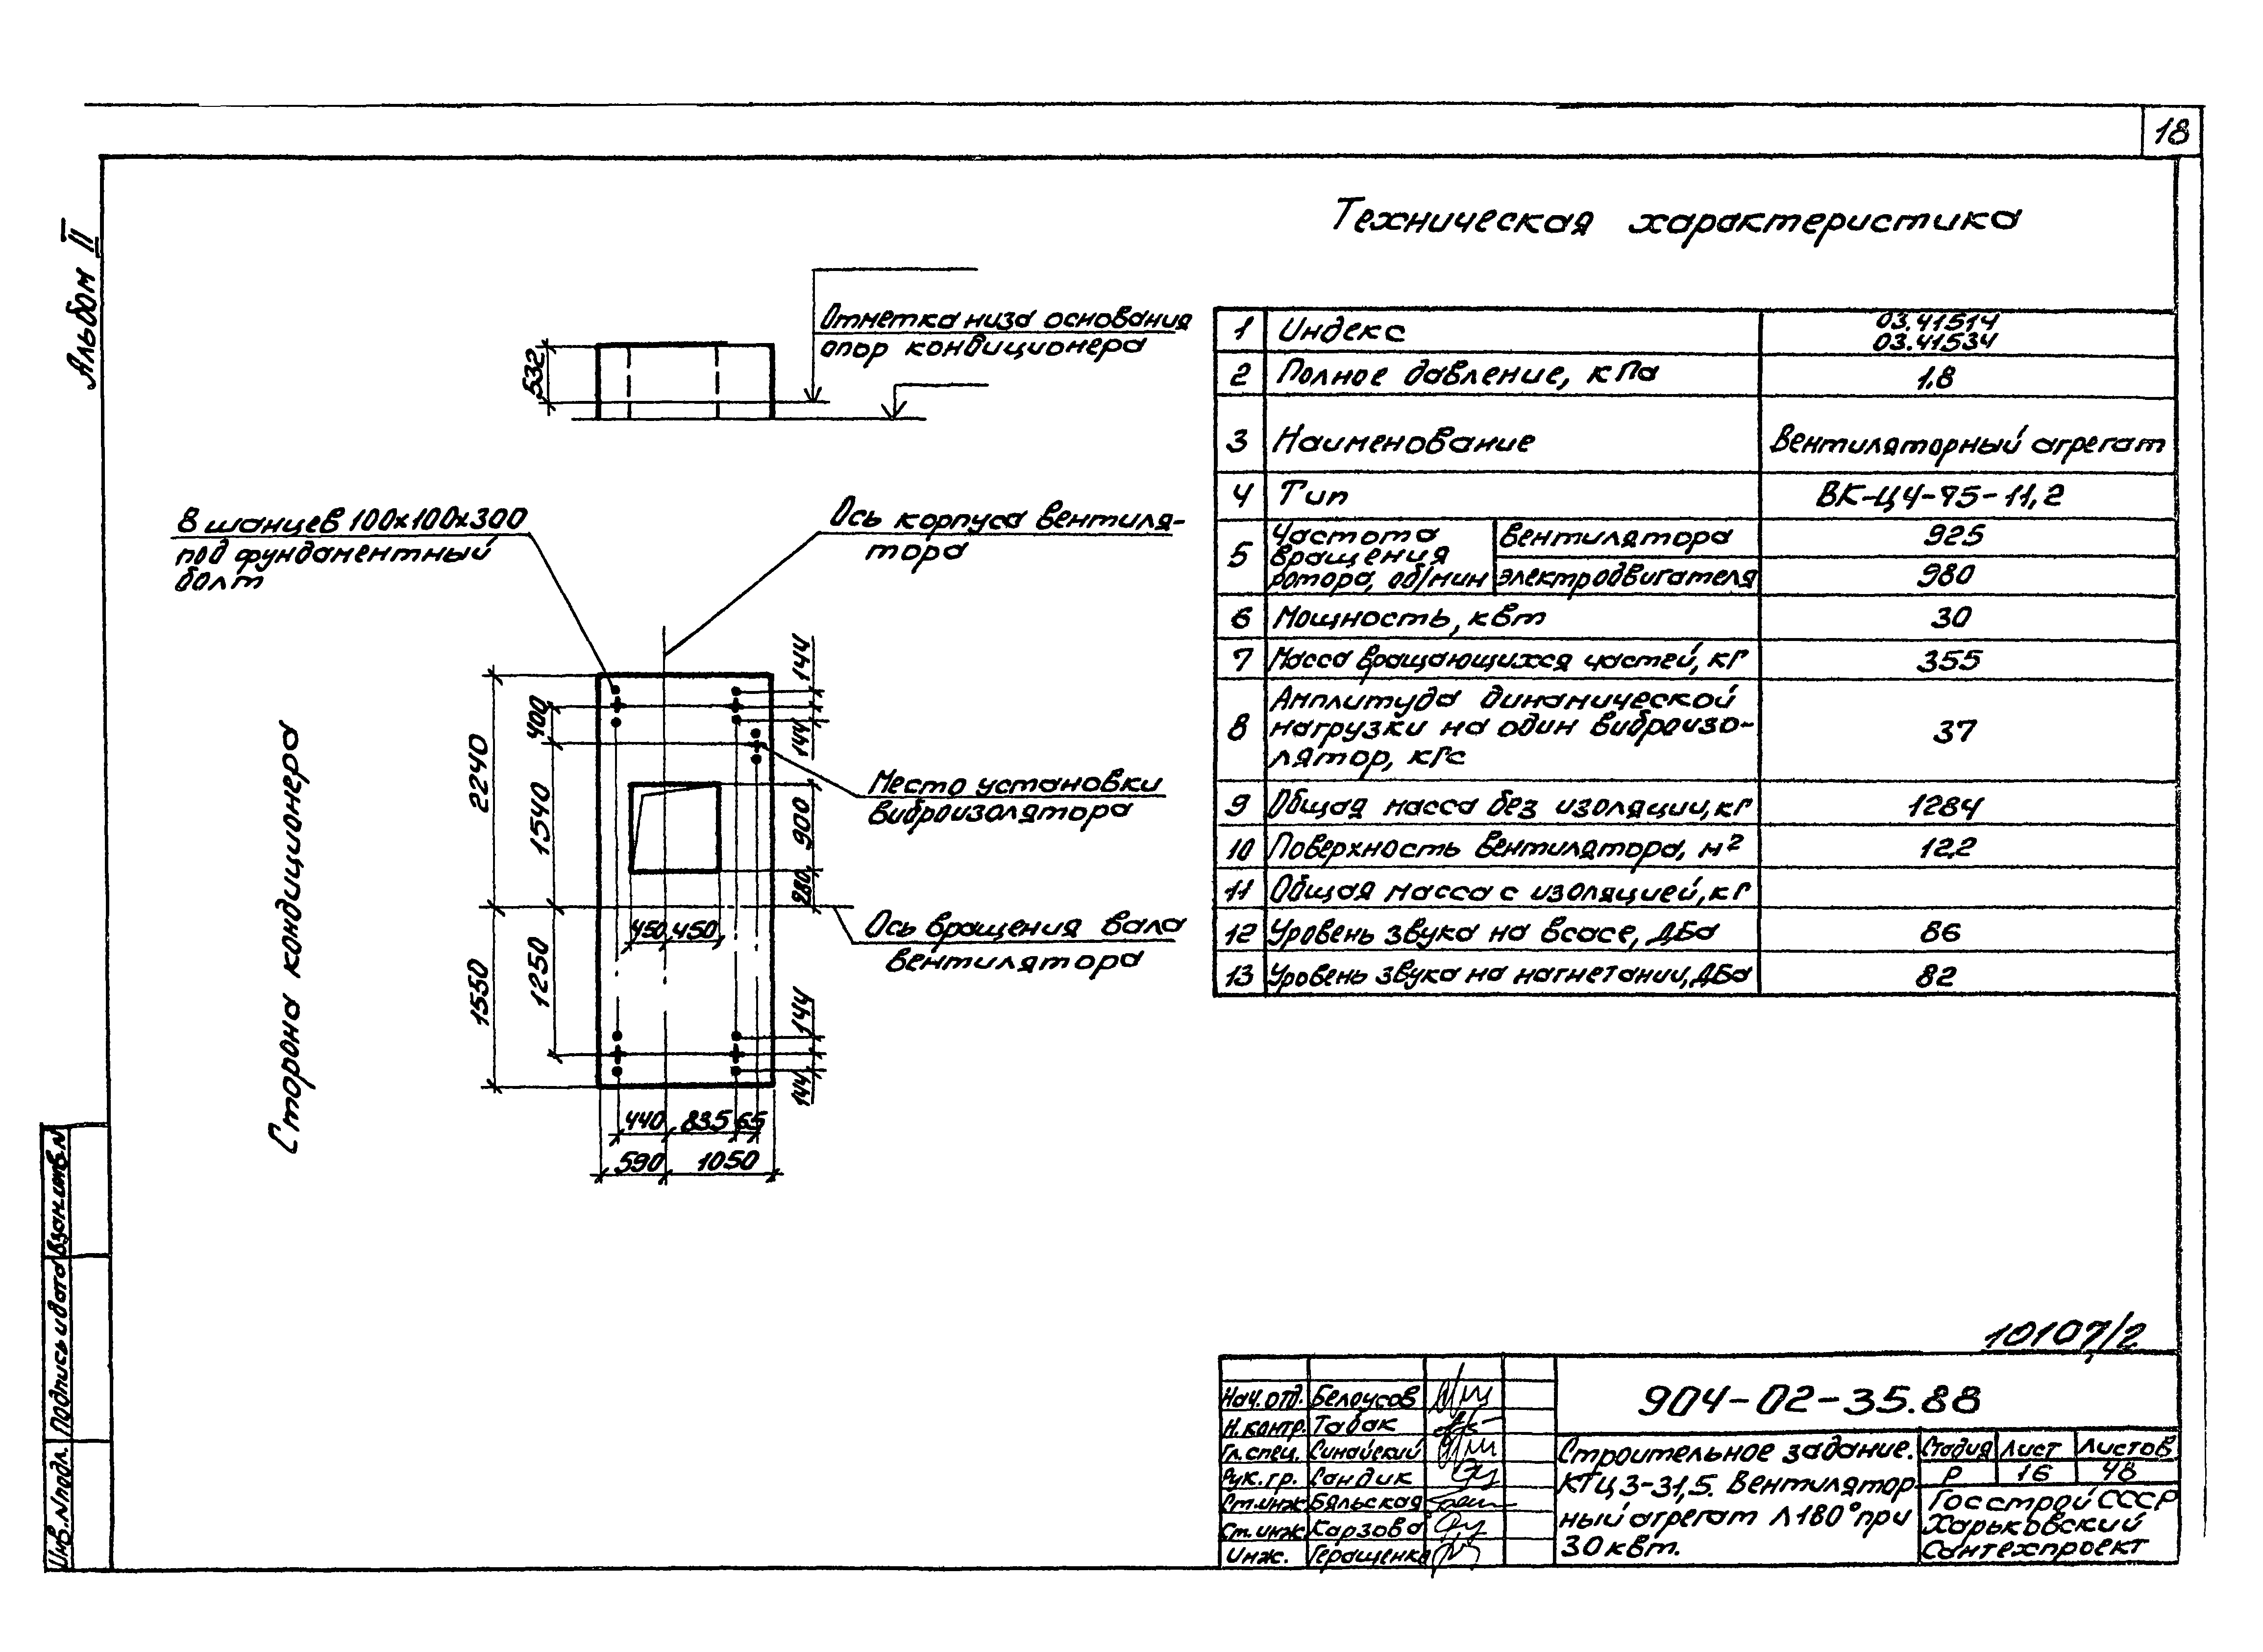 18
Альбом II
Техническая характеристика
Отметка низа основания
опор кондиционера
532
8 шанцев 100х100х300
под фундаментный
болт
Ось корпуса вентиля-
тора
144
400
144
2240
1540
Место установки
виброизолятора
900
280
Сторона кондиционера
450 450
Ось вращения вала
вентилятора
1550
1250
144
144
440 835 65
590 1050
1 Индекс 03.41514
03.41534
2 Полное давление, кПа 1,8
3 Наименование Вентиляторный агрегат
4 Тип ВК-Ц4-75-11,2
5 Частота вращения ротора, об/мин вентилятора 925
электродвигателя 980
6 Мощность, квт 30
7 Масса вращающихся частей, кг 355
8 Амплитуда динамической
нагрузки на один виброизо-
лятор, кгс 37
9 Общая масса без изоляции, кг 1284
10 Поверхность вентилятора, м² 12,2
11 Общая масса с изоляцией, кг
12 Уровень звука на всасе, ДБа 86
13 Уровень звука на нагнетании, ДБа 82
10107/2
Нач. отд. Белоусов
Н. контр. Табак
Гл. спец. Синайский
Рук. гр. Сандик
Ст. инж Бяльская
Ст. инж. Карзова
Инж. Геращенко
904-02-35.88
Строительное задание.
КТЦ3-31,5. Вентилятор
ный агрегат Л180° при
30 квт.
Стадия Лист Листов
Р 16 48
Госстрой СССР
Харьковский
Сантехпроект
Взам. инв. N
Подпись и дата
Инв. N подл.